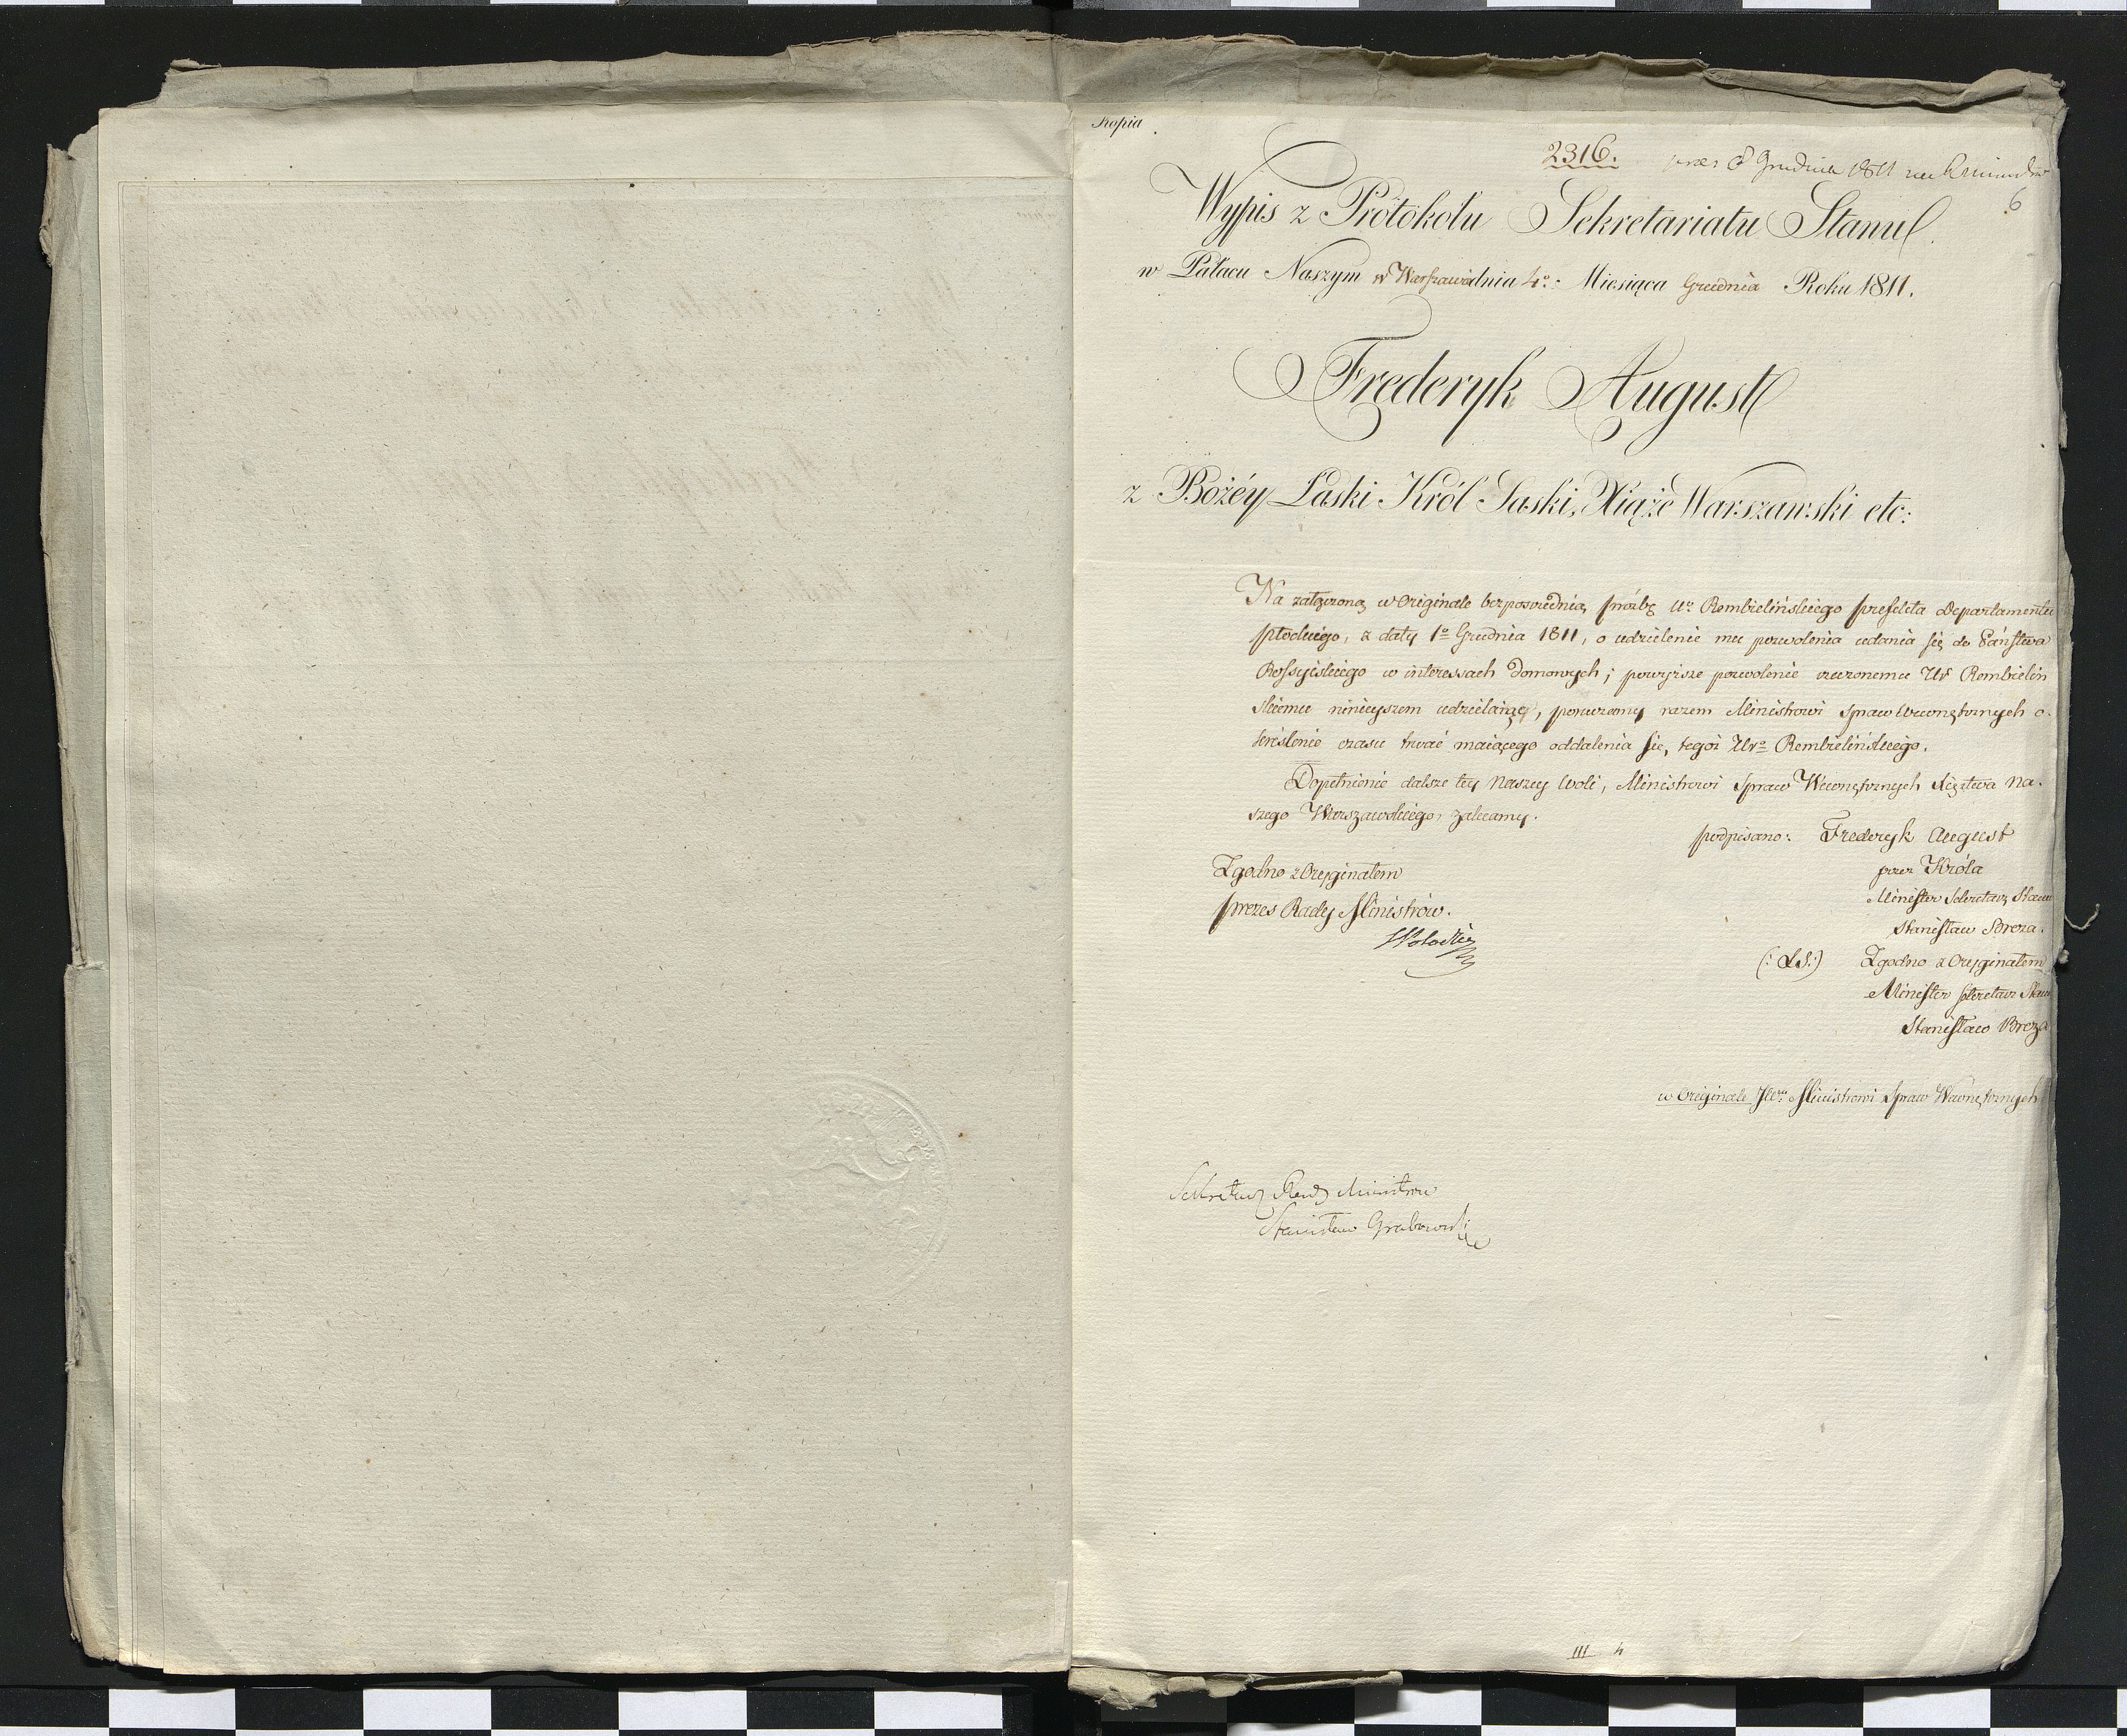 Kopia
2316.
prez 8 Grudnia 1811
6
Wypis z Protokołu Sekretariatu Stanu.
w Pałacu Naszym w Warszawie dnia 4o: Miesiąca Grudnia Roku 1811.
Frederyk August
z Bożéy Łaski Król Saski, Xiąże Warszawski etc:
Na załączoną w Originale bezposrednią prozbę Ur Rembielińskiego prefekta Departamentu
płockiego, z daty 1o Grudnia 1811, o udzielenie mu pozwolenia udania się do Państwa
Rossyiskiego w interessach domowych; powyższe pozwolenie rzeczonemu Ur Rembieliń
skiemu ninieyszem udzielaiąc, poruczamy razem Ministrowi Spraw Wewnętrznych o-
kreslenie czasu trwać maiącego oddalenia się, tegoż Uro Rembielińskiego.
Dopełnienie dalsze tey Naszey Woli, Ministrowi Spraw Wewnętrznych Xięztwa Na-
szego Warszawskiego, zalecamy.
podpisano: Frederyk August
przez Króla
Minister Sekretarz Stanu
Stanisław Breza.
Zgodno z Oryginałem
prezes Rady Ministrów.
(: LS:) Zgodno z Oryginałem
Minister Sekretarz Stanu
Stanisław Breza
w Originale JWmu Ministrowi Spraw Wewnętrznych
Sekretarz Rady Ministrow
Stanisław Grabowski
III 4